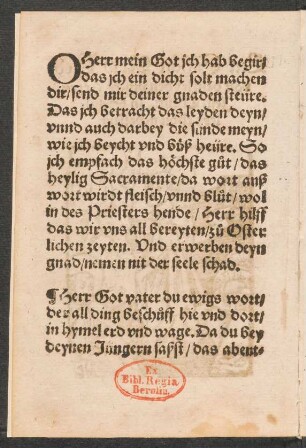 O Herr mein Got jch hab begir/
das jch ein dicht solt machen
dir/send mir deiner gnaden steüre.
Das jch betracht das leyden deyn/
vnnd auch darbey die sünde meyn/
wie jch beycht vnd büß heüre. So
jch empfach das höchste güt/das
heylig Sacramente/da wort auß
wort wirdt fleisch/vnnd blüt/wol
in des Priesters hende/Herr hilff
das wir vns all bereyten/zü Oster
lichen zeyten. Vnd erwerben deyn
gnad/nemen nit der seele schad.
¶ Herr Got vater du ewigs wort/
der all ding beschüff hie vnd dort/
in hymel erd vnd wage. Da du bey
deynen Jungern saßst/das abent-
Ex
Bibl. Regia
Berolin.